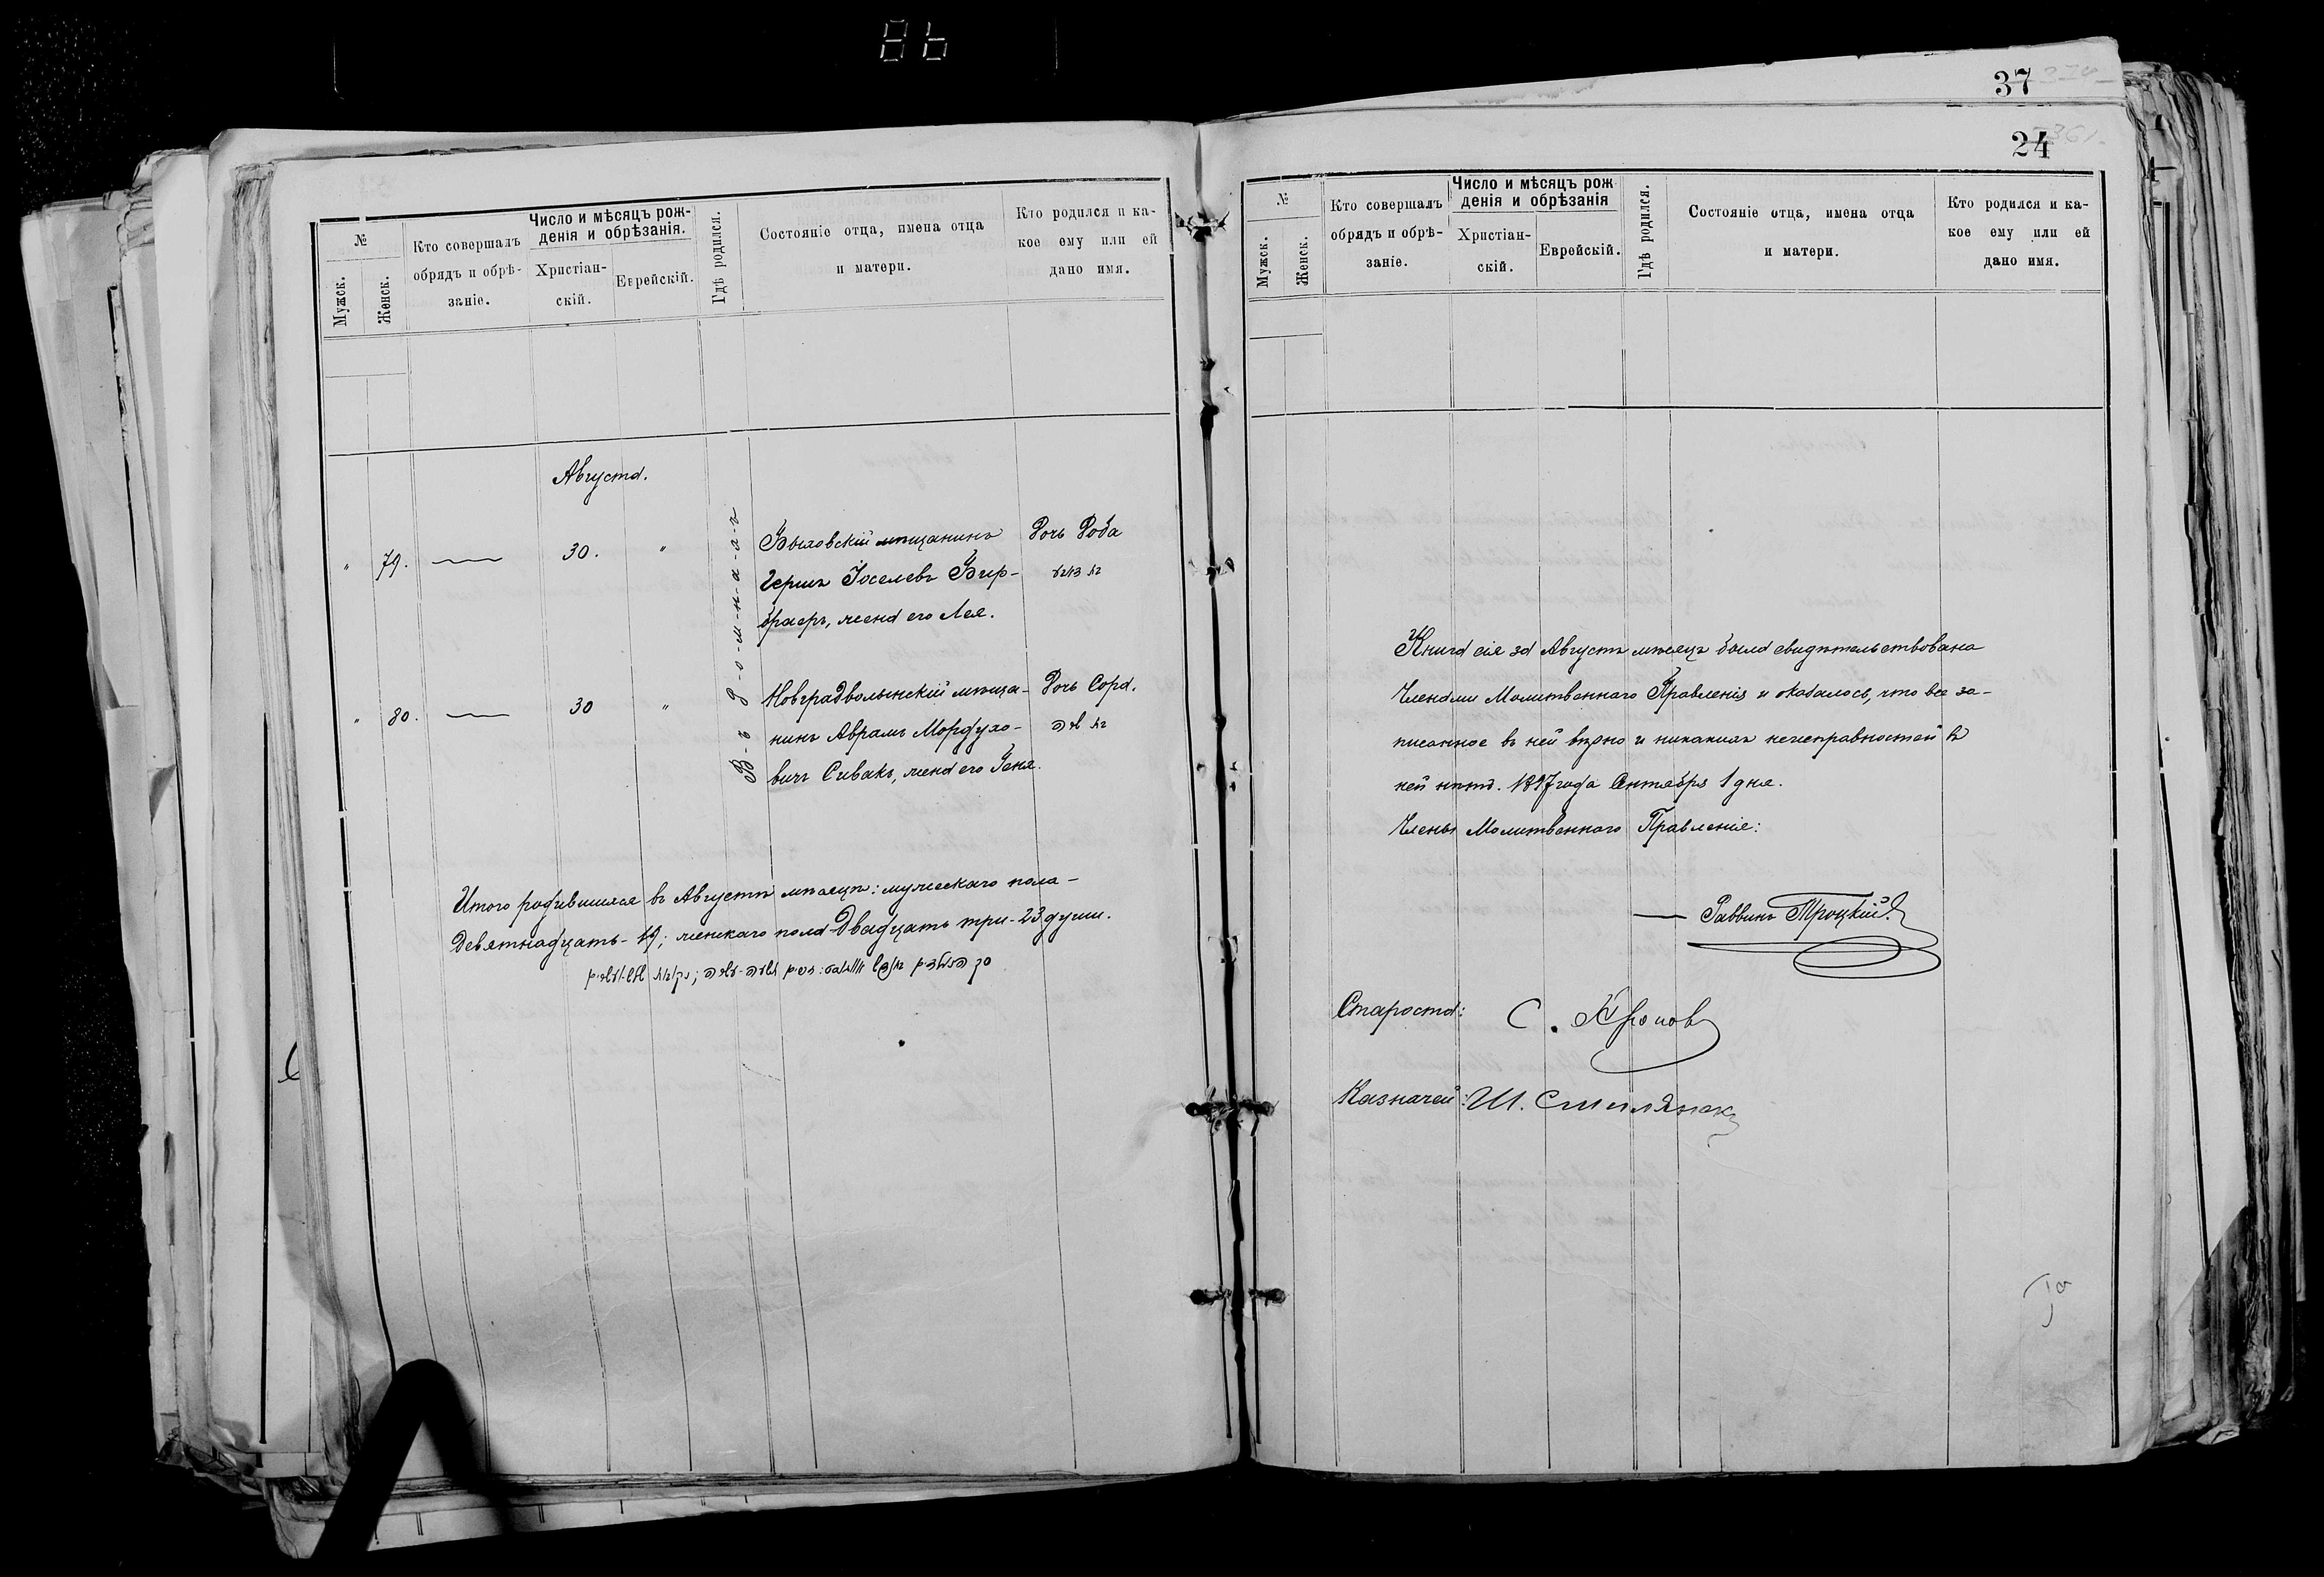 86
37
24
№
Мужск.
Женск.
Кто совершалъ
обрядъ и обрѣ-
заніе.
Число и мѣсяцъ рож-
денія и обрѣзанія.
Христіан-
скій.
Еврейскій.
Гдѣ родился.
Состояніе отца, имена отца
и матери.
Кто родился и ка-
кое ему или ей
дано имя.
Августа.
В-ъ д-о-м-н-а-а-ъ
" 79. — 30. "
Быховскій мѣщанинъ
Гершъ Іоселевъ Бир-
браеръ, жена его Лея.
Дочь Доба
" 80. — 30 "
Новградволынскій мѣща-
нинъ Аврамъ Мордухо-
вичъ Сивакъ, жена его Геня.
Дочь Сора.
Итого родившихся въ Августѣ мѣсяцѣ: мужескаго пола-
Девятнадцать-19; женскаго пола-Двадцать три-23 души.
№
Мужск.
Женск.
Кто совершалъ
обрядъ и обрѣ-
заніе.
Число и мѣсяцъ рож
денія и обрѣзанія
Христіан-
скій.
Еврейскій.
Гдѣ родился.
Состояніе отца, имена отца
и матери.
Кто родился и ка-
кое ему или ей
дано имя.
Книга сія за Августъ мѣсяцъ была свидѣтельствована
Членами Молитвеннаго Правленія и оказалось, что все за-
писанное въ ней вѣрно и никакихъ неисправностей въ
ней нѣтъ. 1897 года Сентября 1 дня.
Члены Молитвеннаго Правленія:
— Раввинъ Троцкій
Староста: С.
Казначей: Ш.